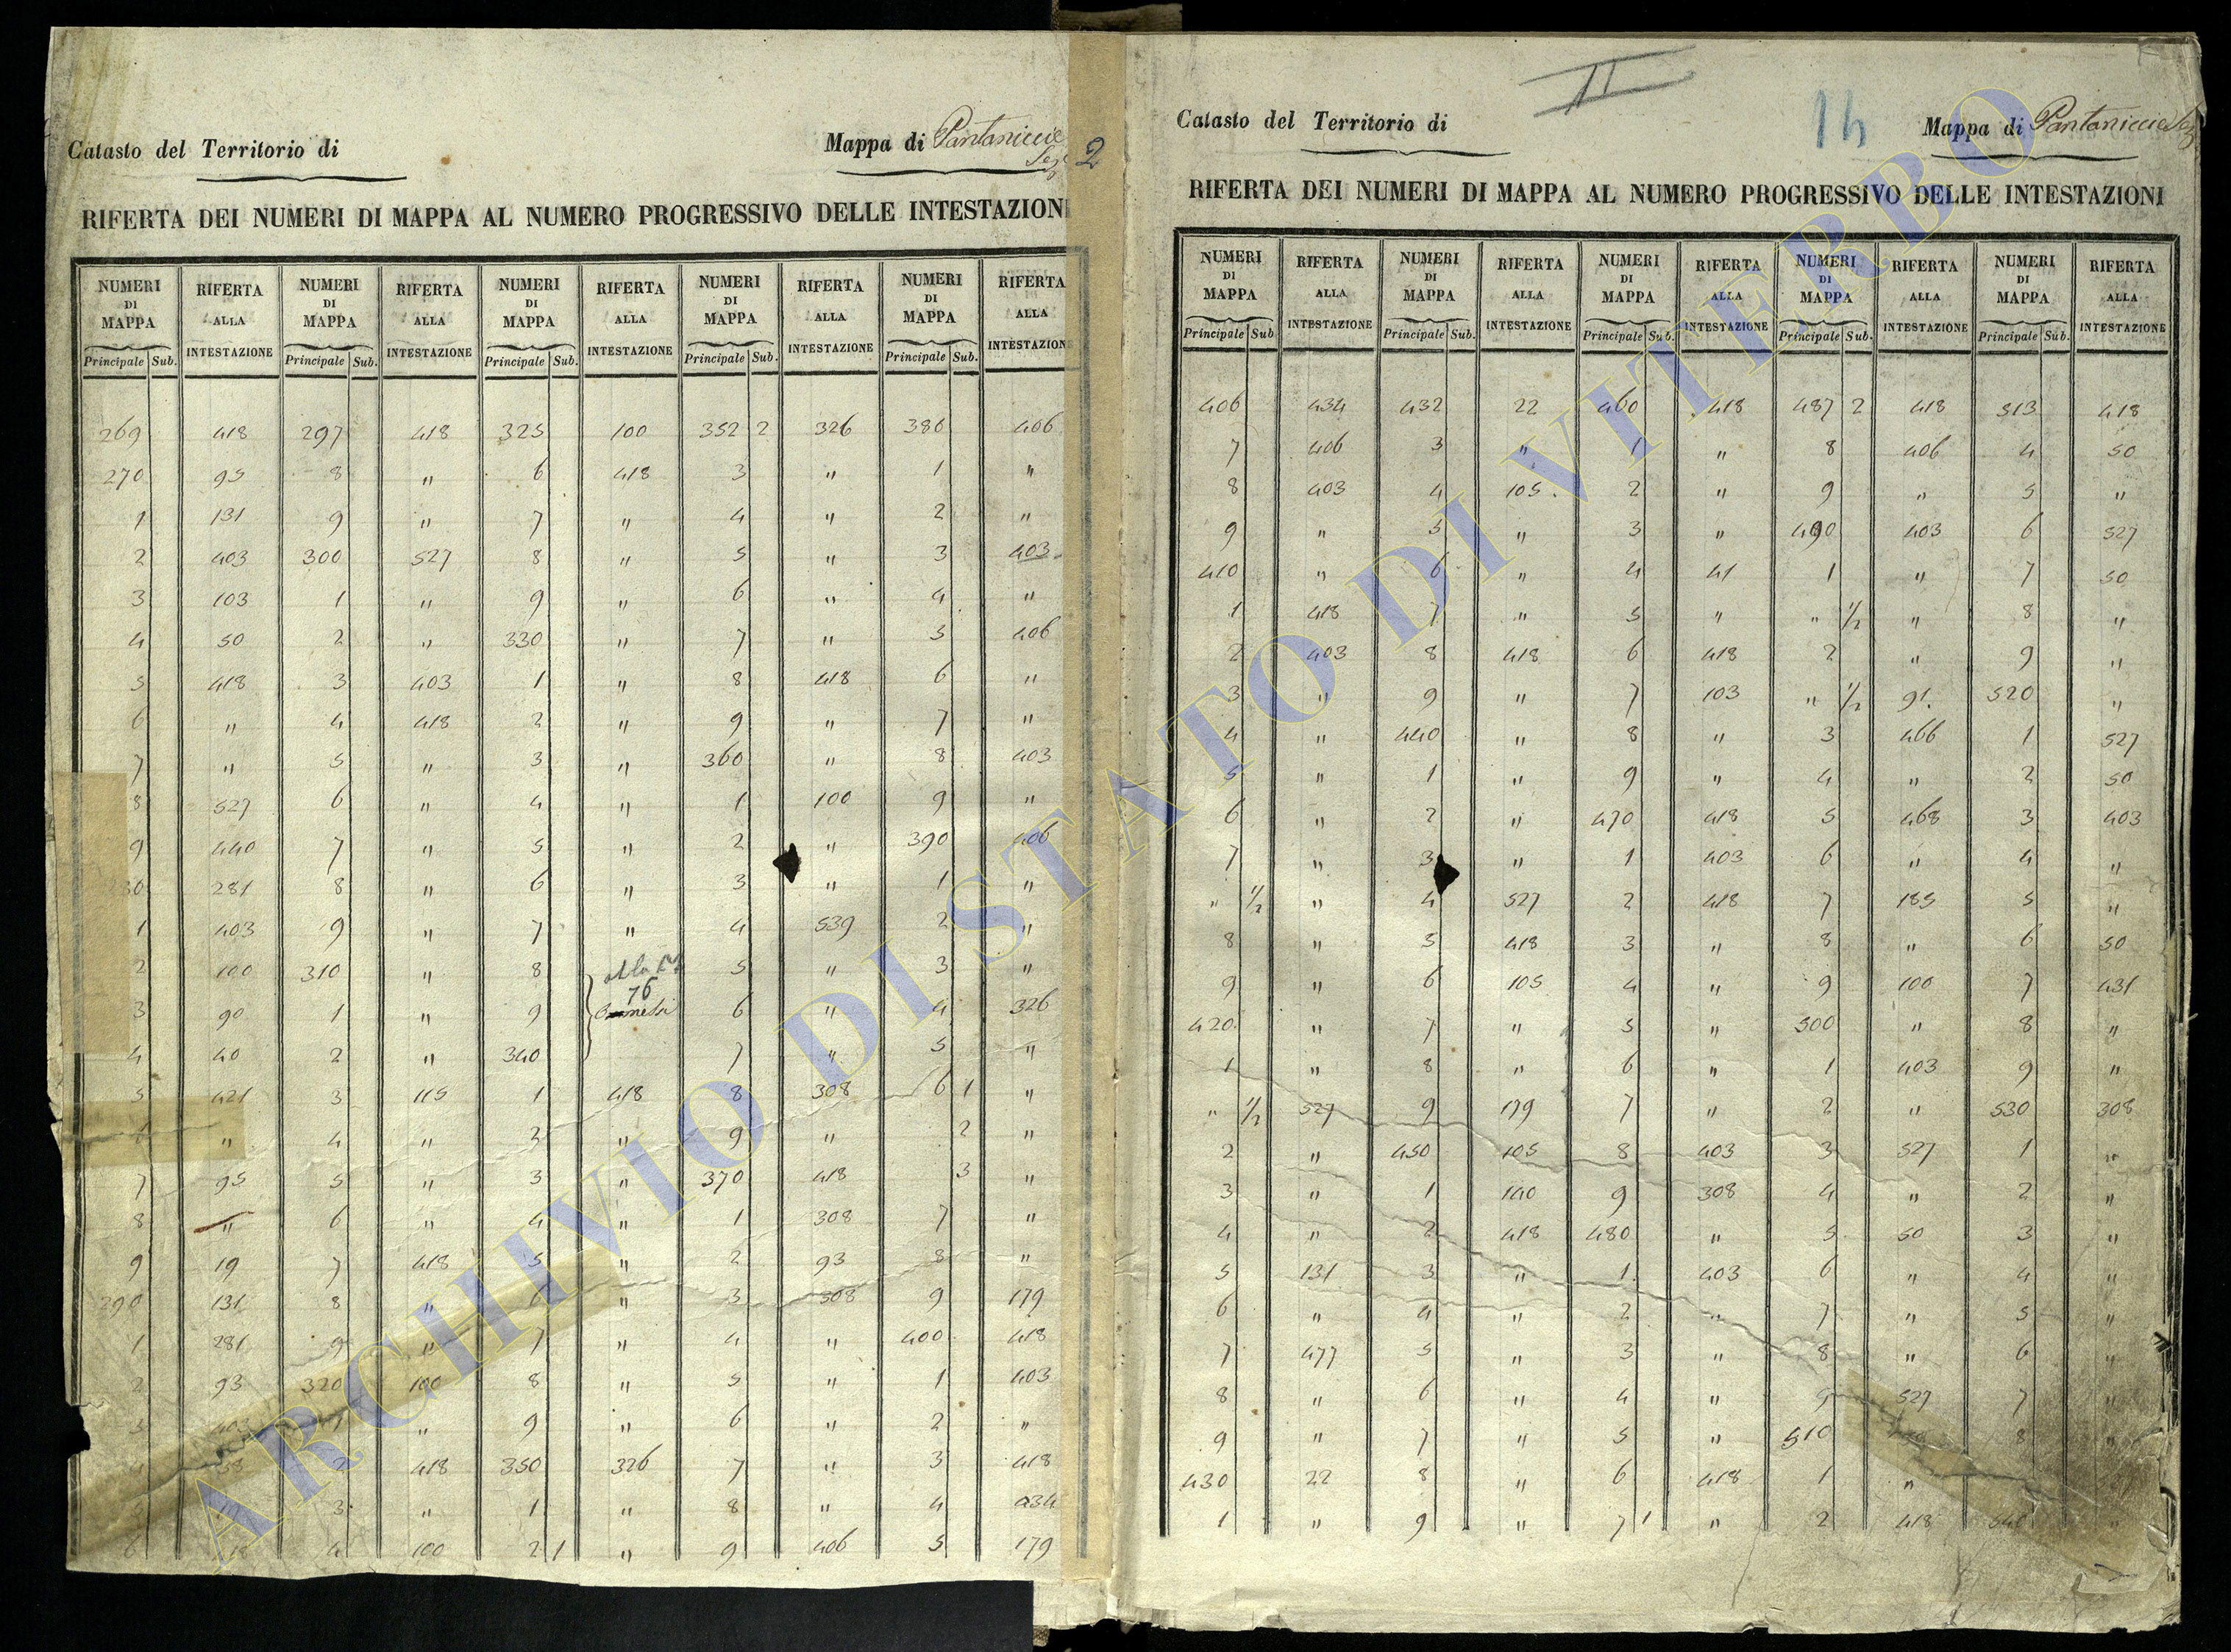 Catasto del Territorio di
Mappa di Pantaniccie
Sez
2
RIFERTA DEI NUMERI DI MAPPA AL NUMERO PROGRESSIVO DELLE INTESTAZIONI
NUMERI DI MAPPA RIFERTA ALLA INTESTAZIONE NUMERI DI MAPPA RIFERTA ALLA INTESTAZIONE NUMERI DI MAPPA RIFERTA ALLA INTESTAZIONE NUMERI DI MAPPA RIFERTA ALLA INTESTAZIONE NUMERI DI MAPPA RIFERTA ALLA INTESTAZIONE
Principale Sub. Principale Sub. Principale Sub. Principale Sub. Principale Sub.
269 418 297 418 325 100 352 2 326 380 406
270 95 8 " 6 418 3 " 1 "
1 131 9 " 7 " 4 " 2 "
2 403 300 527 8 " 5 " 3 403
3 103 1 " 9 " 6 " 4 "
4 50 2 " 330 " 7 " 5 406
5 418 3 403 1 " 8 418 6 "
6 " 4 418 2 " 9 " 7 "
7 " 5 " 3 " 360 " 8 403
8 527 6 " 4 " 1 100 9 "
9 440 7 " 5 " 2 " 390 406
280 281 8 " 6 " 3 " 1 "
1 403 9 " 7 " 4 539 2 "
2 100 310 " 8 alla 5 " 3 "
3 90 1 " 9 76 6 " 4 326
4 40 2 " 340 7 " 5 "
5 421 3 115 1 418 8 308 6 1 "
6 " 4 " 2 " 9 " 2 "
7 95 5 " 3 " 370 418 3 "
8 " 6 " 4 " 1 308 7 "
9 19 7 418 5 " 2 93 8 "
290 131 8 " 6 " 3 308 9 179
1 281 9 " 7 " 4 " 400 418
2 93 320 100 8 " 5 " 1 403
3 403 1 " 9 " 6 " 2 "
2 418 350 326 7 " 3 418
3 " 1 " 8 " 4 434
6 418 4 100 2 1 " 9 406 5 179
II
14
Catasto del Territorio di
Mappa di Pantaniccie Sez
RIFERTA DEI NUMERI DI MAPPA AL NUMERO PROGRESSIVO DELLE INTESTAZIONI
NUMERI DI MAPPA RIFERTA ALLA INTESTAZIONE NUMERI DI MAPPA RIFERTA ALLA INTESTAZIONE NUMERI DI MAPPA RIFERTA ALLA INTESTAZIONE NUMERI DI MAPPA RIFERTA ALLA INTESTAZIONE NUMERI DI MAPPA RIFERTA ALLA INTESTAZIONE
Principale Sub. Principale Sub. Principale Sub. Principale Sub. Principale Sub.
406 434 432 22 460 418 487 2 418 513 418
7 406 3 " 1 " 8 406 4 50
8 403 4 105 2 " 9 " 5 "
9 " 5 " 3 " 490 403 6 527
410 " 6 " 4 41 1 " 7 50
1 418 7 " 5 " " 1/2 " 8 "
2 403 8 418 6 418 2 " 9 "
3 " 9 " 7 103 " 1/2 91 520 "
4 " 440 " 8 " 3 466 1 527
5 " 1 " 9 " 4 " 2 50
6 " 2 " 470 418 5 468 3 403
7 " 3 " 1 403 6 " 4 "
" 1/2 " 4 527 2 418 7 185 5 "
8 " 5 418 3 " 8 " 6 50
9 " 6 105 4 " 9 100 7 431
420 " 7 " 5 " 500 " 8 "
1 " 8 " 6 " 1 403 9 "
" 1/2 527 9 179 7 " 2 " 530 308
2 " 450 105 8 403 3 527 1 "
3 " 1 140 9 308 4 " 2 "
4 " 2 418 480 " 5 50 3 "
5 131 3 " 1 403 6 " 4 "
6 " 4 " 2 " 7 " 5 "
7 477 5 " 3 " 8 " 6 "
8 " 6 " 4 " 9 527 7 "
9 " 7 " 5 " 510 8 "
430 22 8 " 6 418 1 "
1 " 9 " 7 1 " 2 418 540 "
ARCHIVIO DI STATO DI VITERBO